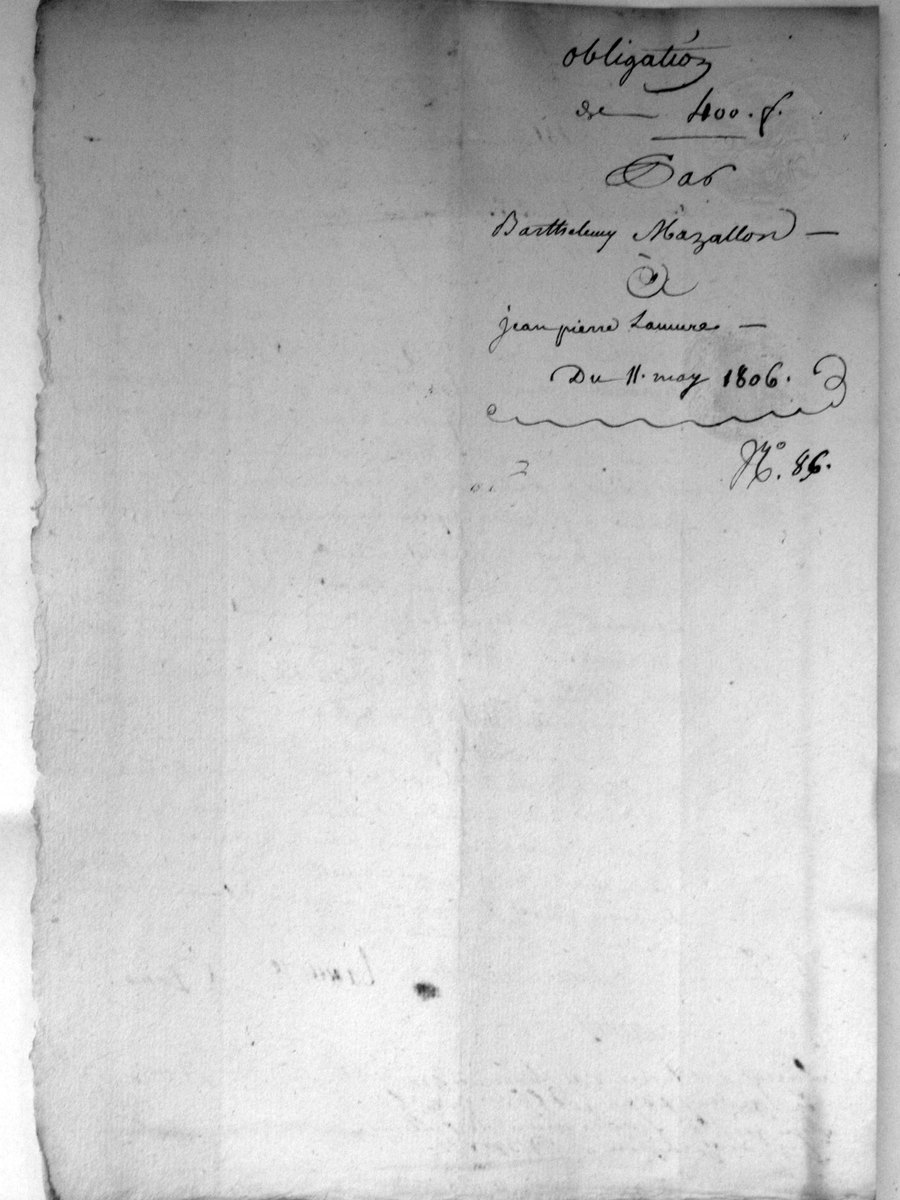 obligation
de 400. f.
Par
Barthelemy Mazallon
à
jean pierre Lamure
Du 11. may 1806.
N.º 86.